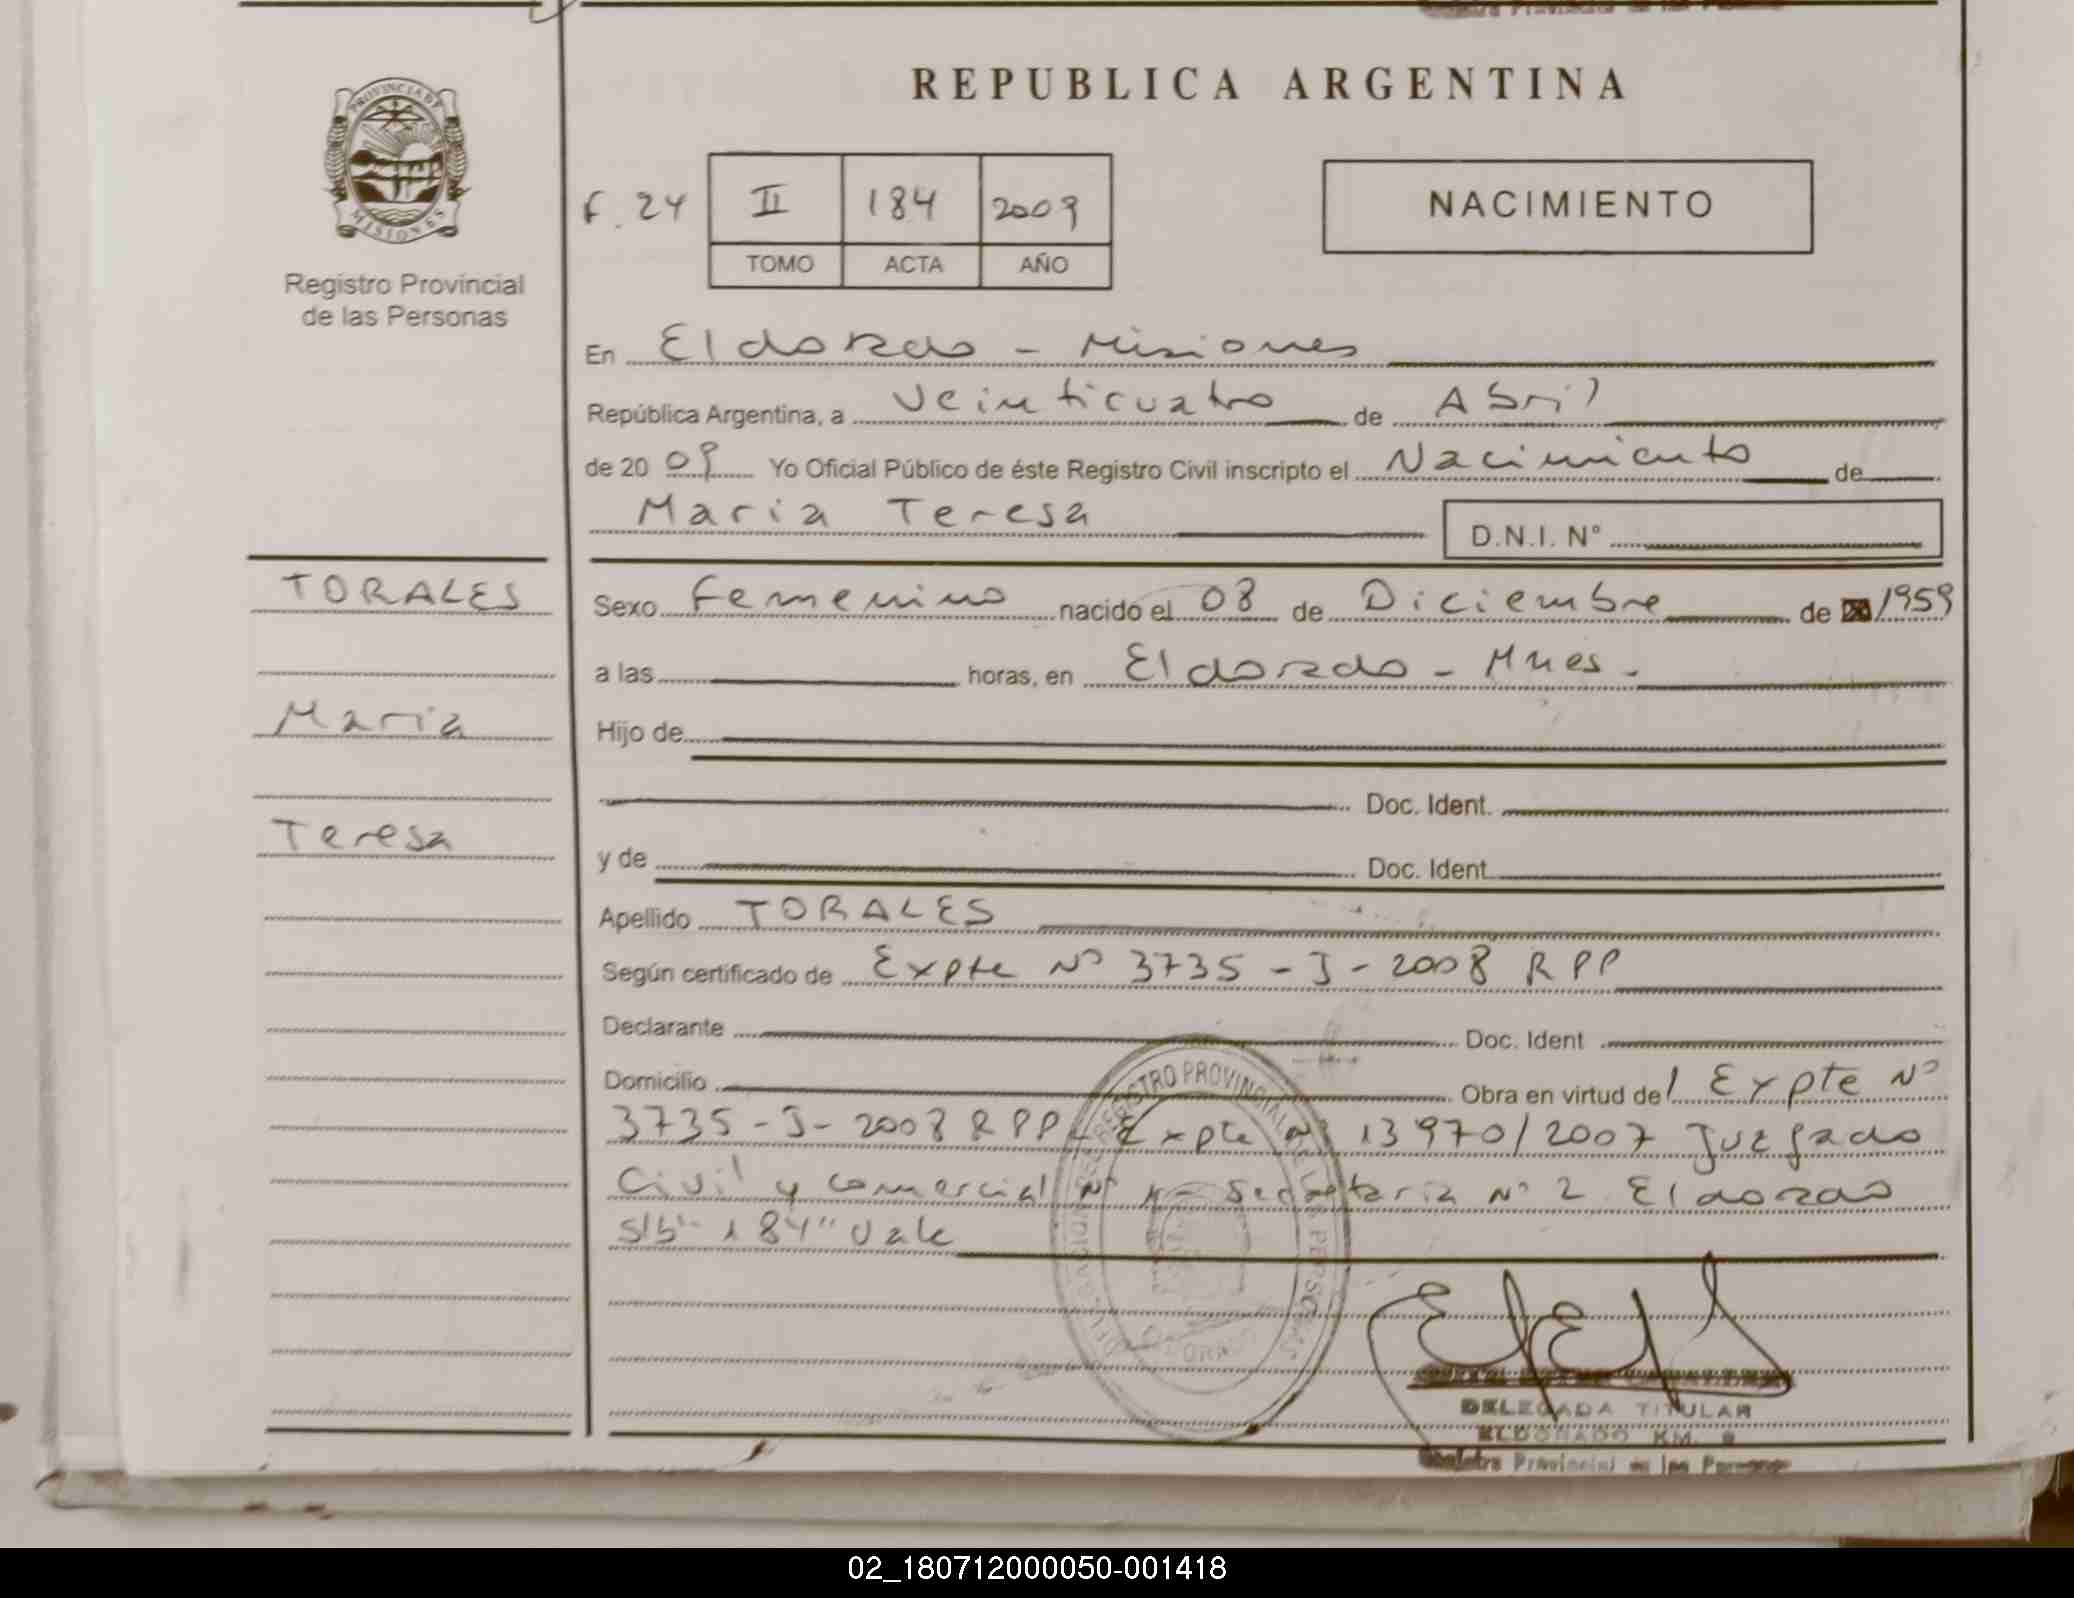 REPUBLICA ARGENTINA
PROVINCIA DE
MISIONES
Registro Provincial
de las Personas
F. 24 II 184 2009
TOMO ACTA AÑO
NACIMIENTO
En Eldorado - Misiones
República Argentina, a Veinticuatro de Abril
de 20 09 Yo Oficial Público de éste Registro Civil inscripto el Nacimiento de
Maria Teresa D.N.I. N°
TORALES
Maria
Teresa
Sexo Femenino nacido el 08 de Diciembre de 1959
a las horas, en Eldorado - Mnes -
Hijo de
Doc. Ident.
y de Doc. Ident.
Apellido TORALES
Según certificado de Expte N° 3735 - J - 2008 RPP
Declarante Doc. Ident
Domicilio Obra en virtud de Expte N°
3735 - J - 2008 RPP - Expte N° 13970/2007 Juzgado
Civil y comercial N° 1 - Secretaria N° 2 Eldorado
S/b "184" Vale
REGISTRO PROVINCIAL DE LAS PERSONAS
DELEGADA TITULAR
ELDORADO KM. 9
Registro Provincial de las Personas
02_180712000050-001418